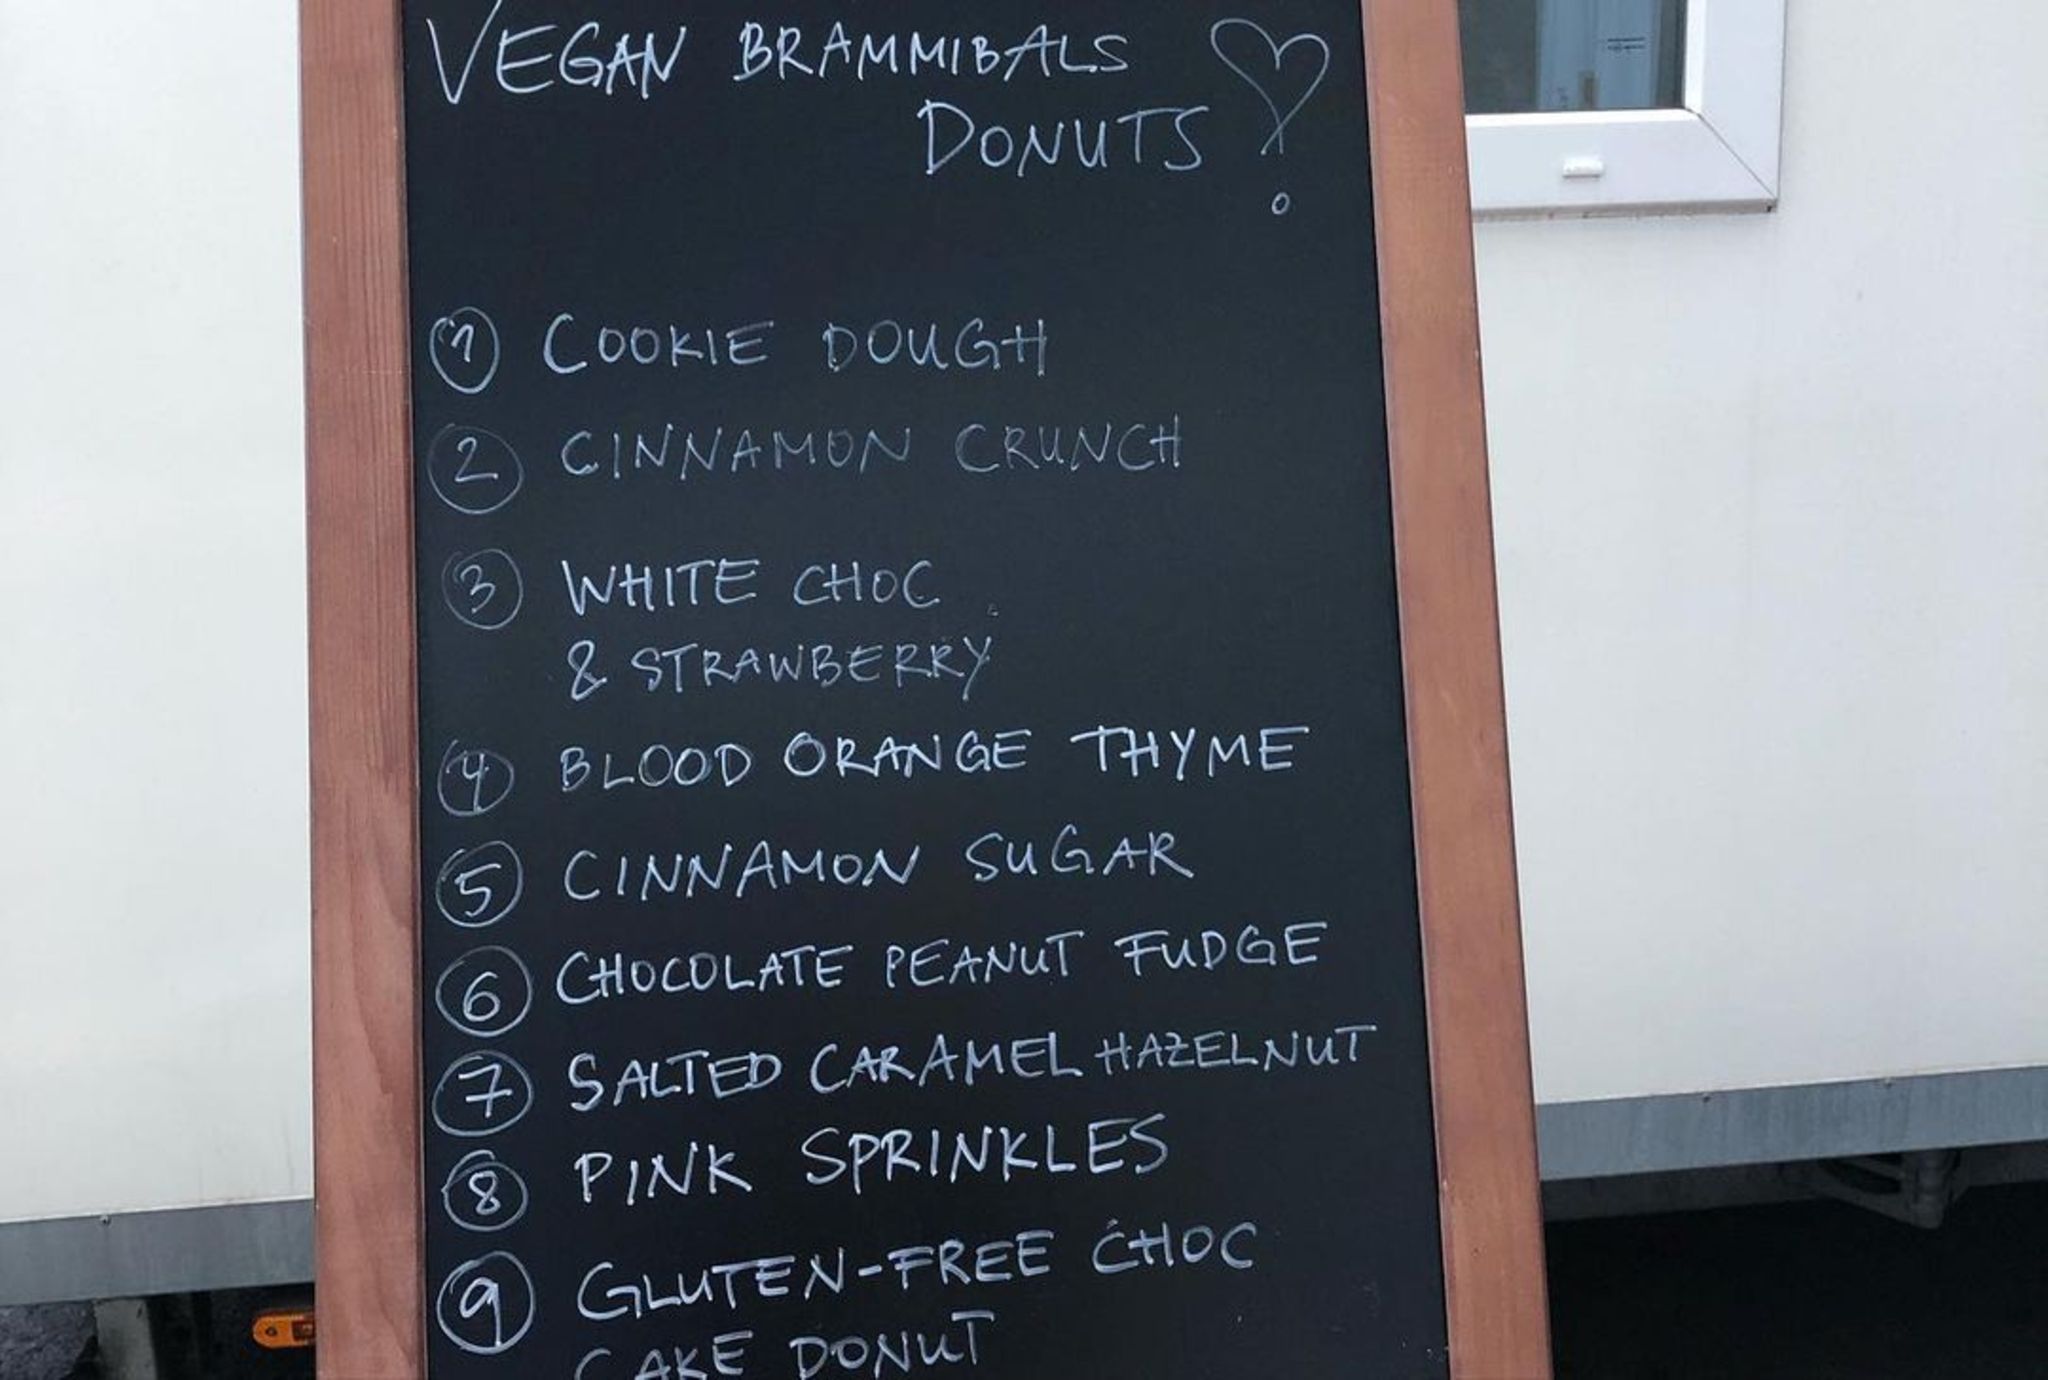 VEGAN BRAMMIBALS
DONUTS
1 COOKIE DOUGH
2 CINNAMON CRUNCH
3 WHITE CHOC
& STRAWBERRY
4 BLOOD ORANGE THYME
5 CINNAMON SUGAR
6 CHOCOLATE PEANUT FUDGE
7 SALTED CARAMEL HAZELNUT
8 PINK SPRINKLES
9 GLUTEN-FREE CHOC
CAKE DONUT